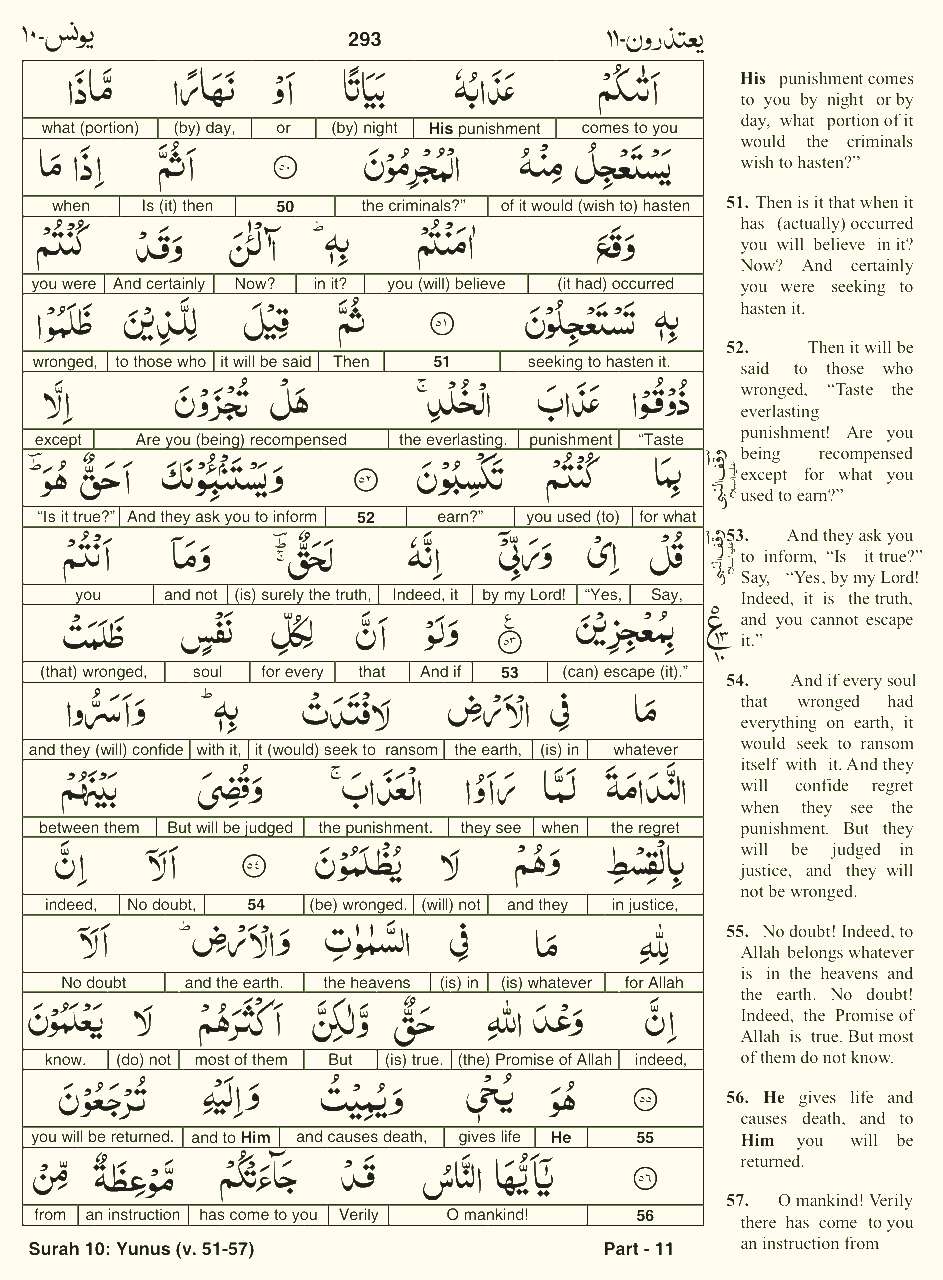 يعتذرون-١١ 293 يونس-١٠
اَتٰىكُمْ عَذَابُهٗ بَيَاتًا اَوْ نَهَارًا مَّاذَا
comes to you His punishment (by) night or (by) day, what (portion)
يَسْتَعْجِلُ مِنْهُ الْمُجْرِمُوْنَ ٥٠ اَثُمَّ اِذَا مَا
of it would (wish to) hasten the criminals?” 50 Is (it) then when
وَقَعَ اٰمَنْتُمْ بِهٖ ؕ آٰلْـٰٔنَ وَقَدْ كُنْتُمْ
(it had) occurred you (will) believe in it? Now? And certainly you were
بِهٖ تَسْتَعْجِلُوْنَ ٥١ ثُمَّ قِيْلَ لِلَّذِيْنَ ظَلَمُوْا
seeking to hasten it. 51 Then it will be said to those who wronged,
ذُوْقُوْا عَذَابَ الْخُلْدِ ۚ هَلْ تُجْزَوْنَ اِلَّا
“Taste punishment the everlasting. Are you (being) recompensed except
بِمَا كُنْتُمْ تَكْسِبُوْنَ ٥٢ وَيَسْتَنْۢبِـُٔوْنَكَ اَحَقٌّ هُوَ ؕ
for what you used (to) earn?” 52 And they ask you to inform “Is it true?”
قُلْ اِىْ وَرَبِّىْۤ اِنَّهٗ لَحَقٌّ ؕ وَمَاۤ اَنْتُمْ
Say, “Yes, by my Lord! Indeed, it (is) surely the truth, and not you
بِمُعْجِزِيْنَ ٥٣ ع وَلَوْ اَنَّ لِكُلِّ نَفْسٍ ظَلَمَتْ
(can) escape (it).” 53 And if that for every soul (that) wronged,
مَا فِى الْاَرْضِ لَافْتَدَتْ بِهٖ ؕ وَاَسَرُّوا
whatever (is) in the earth, it (would) seek to ransom with it, and they (will) confide
النَّدَامَةَ لَمَّا رَاَوُا الْعَذَابَ ۚ وَقُضِىَ بَيْنَهُمْ
the regret when they see the punishment. But will be judged between them
بِالْقِسْطِ وَهُمْ لَا يُظْلَمُوْنَ ٥٤ اَلَاۤ اِنَّ
in justice, and they (will) not (be) wronged. 54 No doubt, indeed,
لِلّٰهِ مَا فِى السَّمٰوٰتِ وَالْاَرْضِ ؕ اَلَاۤ
for Allah (is) whatever (is) in the heavens and the earth. No doubt
اِنَّ وَعْدَ اللّٰهِ حَقٌّ وَّلٰكِنَّ اَكْثَرَهُمْ لَا يَعْلَمُوْنَ
indeed, (the) Promise of Allah (is) true. But most of them (do) not know.
٥٥ هُوَ يُحْىٖ وَيُمِيْتُ وَاِلَيْهِ تُرْجَعُوْنَ
55 He gives life and causes death, and to Him you will be returned.
٥٦ يٰۤاَيُّهَا النَّاسُ قَدْ جَآءَتْكُمْ مَّوْعِظَةٌ مِّنْ
56 O mankind! Verily has come to you an instruction from
His punishment comes
to you by night or by
day, what portion of it
would the criminals
wish to hasten?”
51. Then is it that when it
has (actually) occurred
you will believe in it?
Now? And certainly
you were seeking to
hasten it.
52. Then it will be
said to those who
wronged, “Taste the
everlasting
punishment! Are you
being recompensed
except for what you
used to earn?”
53. And they ask you
to inform, “Is it true?”
Say, “Yes, by my Lord!
Indeed, it is the truth,
and you cannot escape
it.”
54. And if every soul
that wronged had
everything on earth, it
would seek to ransom
itself with it. And they
will confide regret
when they see the
punishment. But they
will be judged in
justice, and they will
not be wronged.
55. No doubt! Indeed, to
Allah belongs whatever
is in the heavens and
the earth. No doubt!
Indeed, the Promise of
Allah is true. But most
of them do not know.
56. He gives life and
causes death, and to
Him you will be
returned.
57. O mankind! Verily
there has come to you
an instruction from
Surah 10: Yunus (v. 51-57) Part - 11